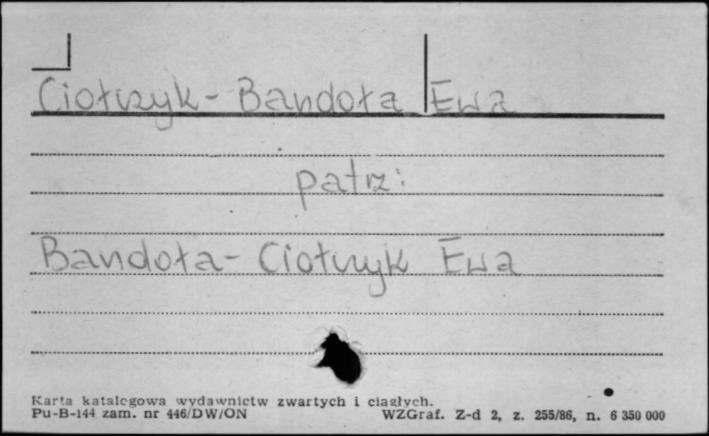 Ciołczyk-Bandoła Ewa
patrz:
Bandoła-Ciołczyk Ewa
Karta katalogowa wydawnictw zwartych i ciągłych.
Pu-B-144 zam. nr 446/DW/ON WZGraf. Z-d 2, z. 255/86, n. 6 350 000